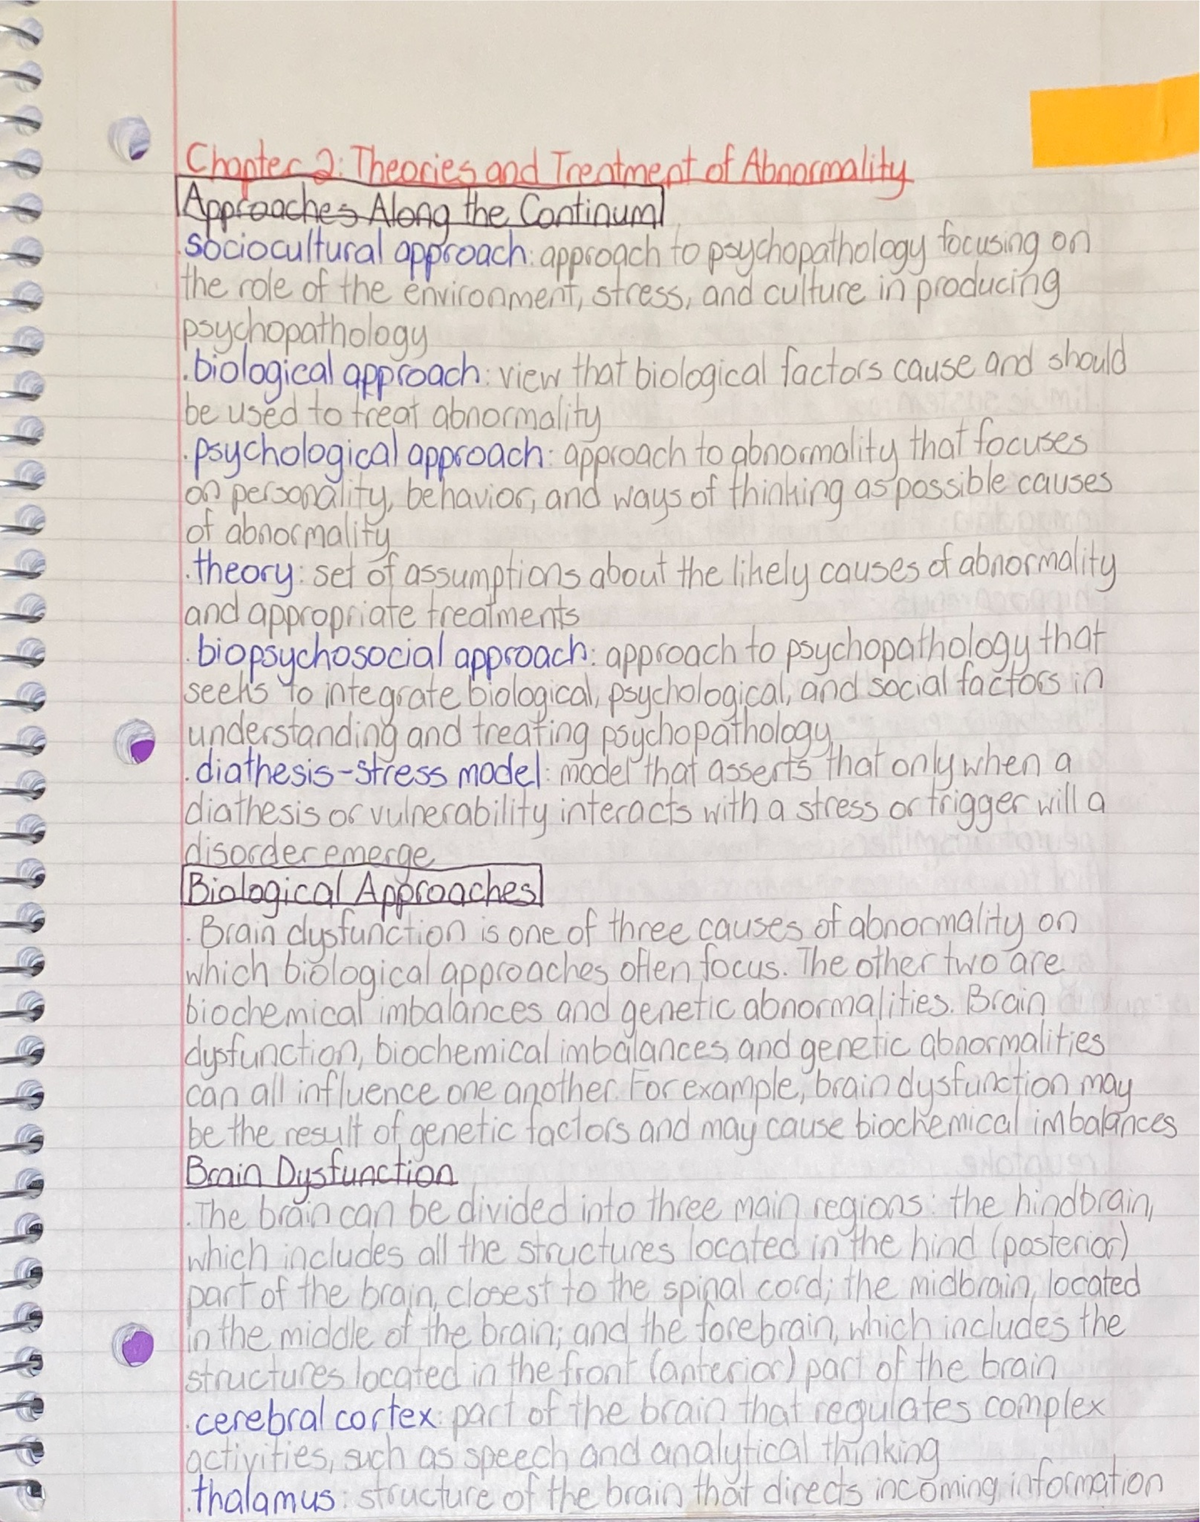 Chapter 2: Theories and Treatment of Abnormality
Approaches Along the Continum
.sociocultural approach: approach to psychopathology focusing on
the role of the environment, stress, and culture in producing
psychopathology
.biological approach: view that biological factors cause and should
be used to treat abnormality
.psychological approach: approach to abnormality that focuses
on personality, behavior, and ways of thinking as possible causes
of abnormality
.theory: set of assumptions about the likely causes of abnormality
and appropriate treatments
.biopsychosocial approach: approach to psychopathology that
seeks to integrate biological, psychological, and social factors in
understanding and treating psychopathology
.diathesis-stress model: model that asserts that only when a
diathesis or vulnerability interacts with a stress or trigger will a
disorder emerge
Biological Approaches
.Brain dysfunction is one of three causes of abnormality on
which biological approaches often focus. The other two are
biochemical imbalances and genetic abnormalities. Brain
dysfunction, biochemical imbalances, and genetic abnormalities
can all influence one another. For example, brain dysfunction may
be the result of genetic factors and may cause biochemical imbalances
Brain Dysfunction
.The brain can be divided into three main regions: the hindbrain,
which includes all the structures located in the hind (posterior)
part of the brain, closest to the spinal cord; the midbrain, located
in the middle of the brain; and the forebrain, which includes the
structures located in the front (anterior) part of the brain
.cerebral cortex: part of the brain that regulates complex
activities, such as speech and analytical thinking
.thalamus: structure of the brain that directs incoming information